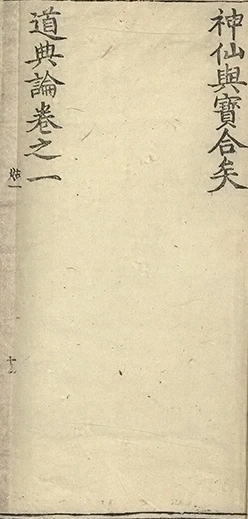 神仙與寶合矣
道典論卷之一